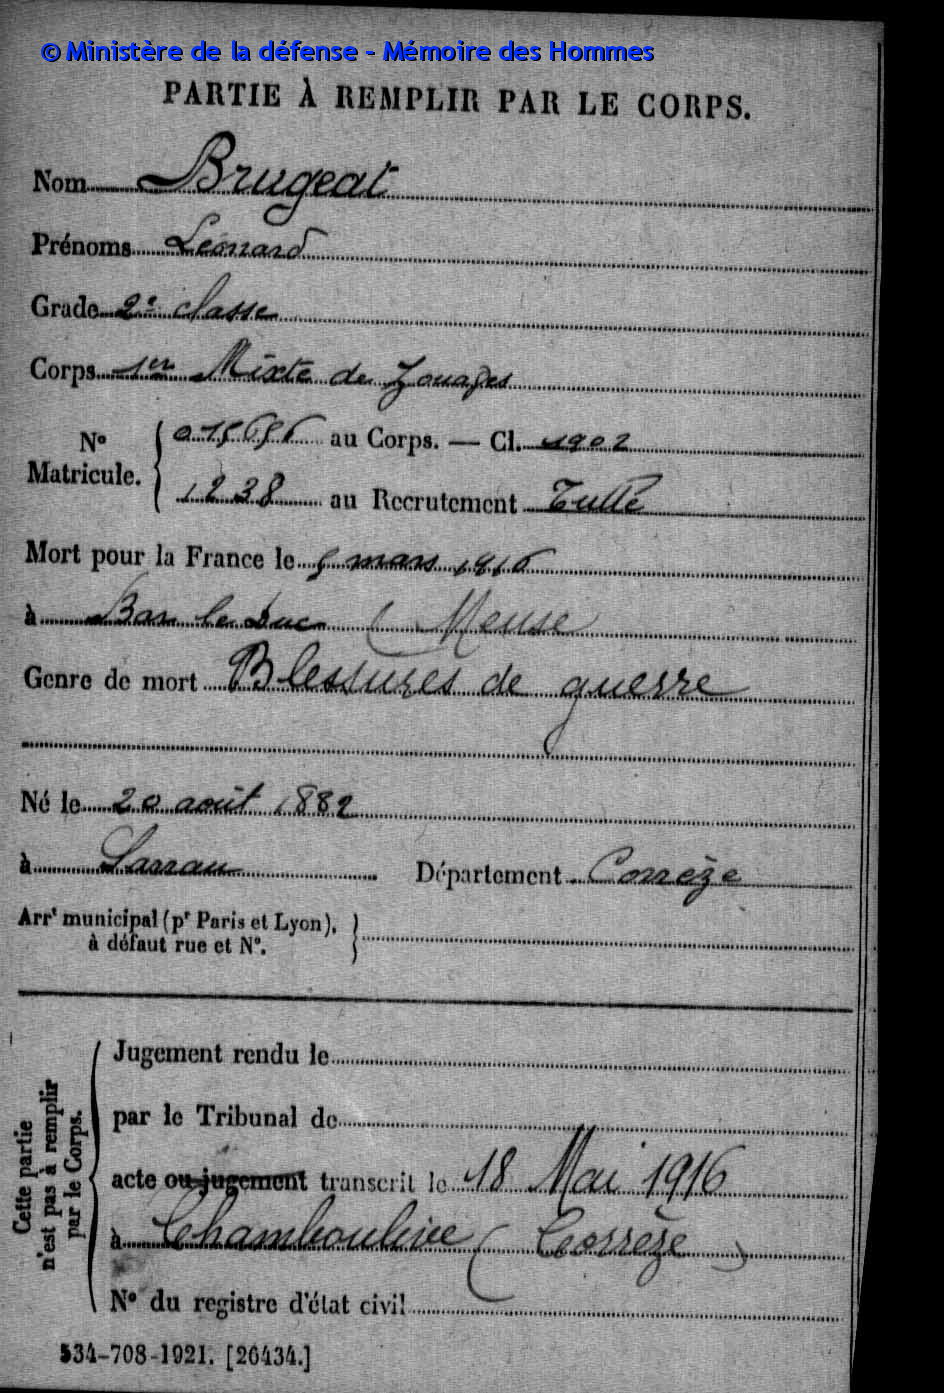 © Ministère de la défense - Mémoire des Hommes
PARTIE À REMPLIR PAR LE CORPS.
Nom Brugeat
Prénoms Léonard
Grade 2e classe
Corps 1er Mixte de Zouaves
No Matricule. { 015656 au Corps. — Cl. 1902
1238 au Recrutement Tulle
Mort pour la France le 5 mars 1916
à Bar le Duc (Meuse
Genre de mort Blessures de guerre
Né le 20 août 1882
à Sarran Département Corrèze
Arrt municipal (pr Paris et Lyon),
à défaut rue et No.
Cette partie n'est pas à remplir par le Corps.
Jugement rendu le
par le Tribunal de
acte ou jugement transcrit le 18 Mai 1916
à Chamboulive (Corrèze)
No du registre d'état civil
534-708-1921. [26434.]